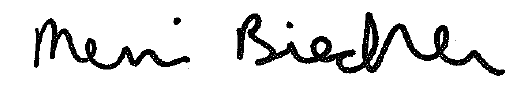 Merri Biechler